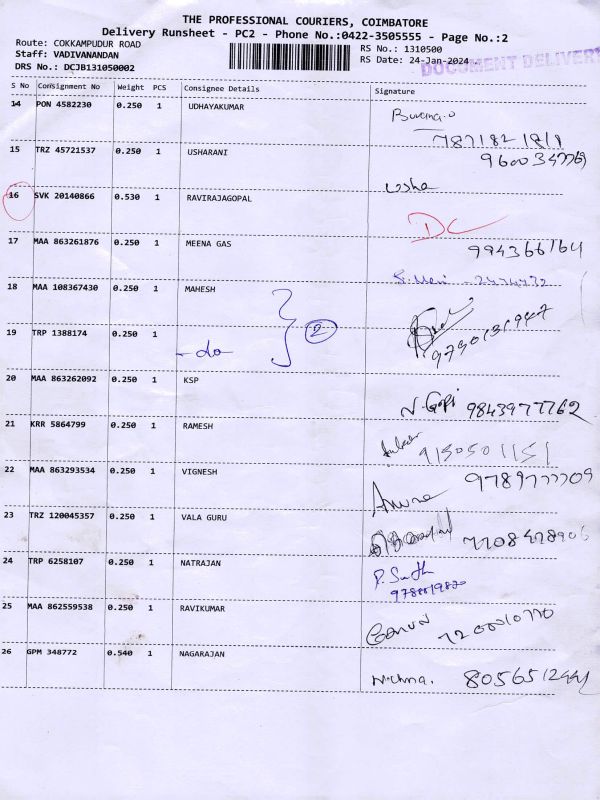 THE PROFESSIONAL COURIERS, COIMBATORE
Delivery Runsheet - PC2 - Phone No.:0422-3505555 - Page No.:2
Route: COKKAMPUDUR ROAD
Staff: VADIVANANDAN
DRS No.: DCJB131050002
RS No.: 1310500
RS Date: 24-Jan-2024
DOCUMENT DELIVERY
S No Consignment No Weight PCS Consignee Details Signature
14 PON 4582230 0.250 1 UDHAYAKUMAR
15 TRZ 45721537 0.250 1 USHARANI
9600347769
usha
16 SVK 20140866 0.530 1 RAVIRAJAGOPAL
DC
17 MAA 863261876 0.250 1 MEENA GAS
994366164
18 MAA 108367430 0.250 1 MAHESH
19 TRP 1388174 0.250 1 - do - 2
9790131947
20 MAA 863262092 0.250 1 KSP
N. Gopi 9843977762
21 KRR 5864799 0.250 1 RAMESH
9150501151
22 MAA 863293534 0.250 1 VIGNESH
9789777709
23 TRZ 120045357 0.250 1 VALA GURU
7708478906
24 TRP 6258107 0.250 1 NATRAJAN
25 MAA 862559538 0.250 1 RAVIKUMAR
26 GPM 348772 0.540 1 NAGARAJAN